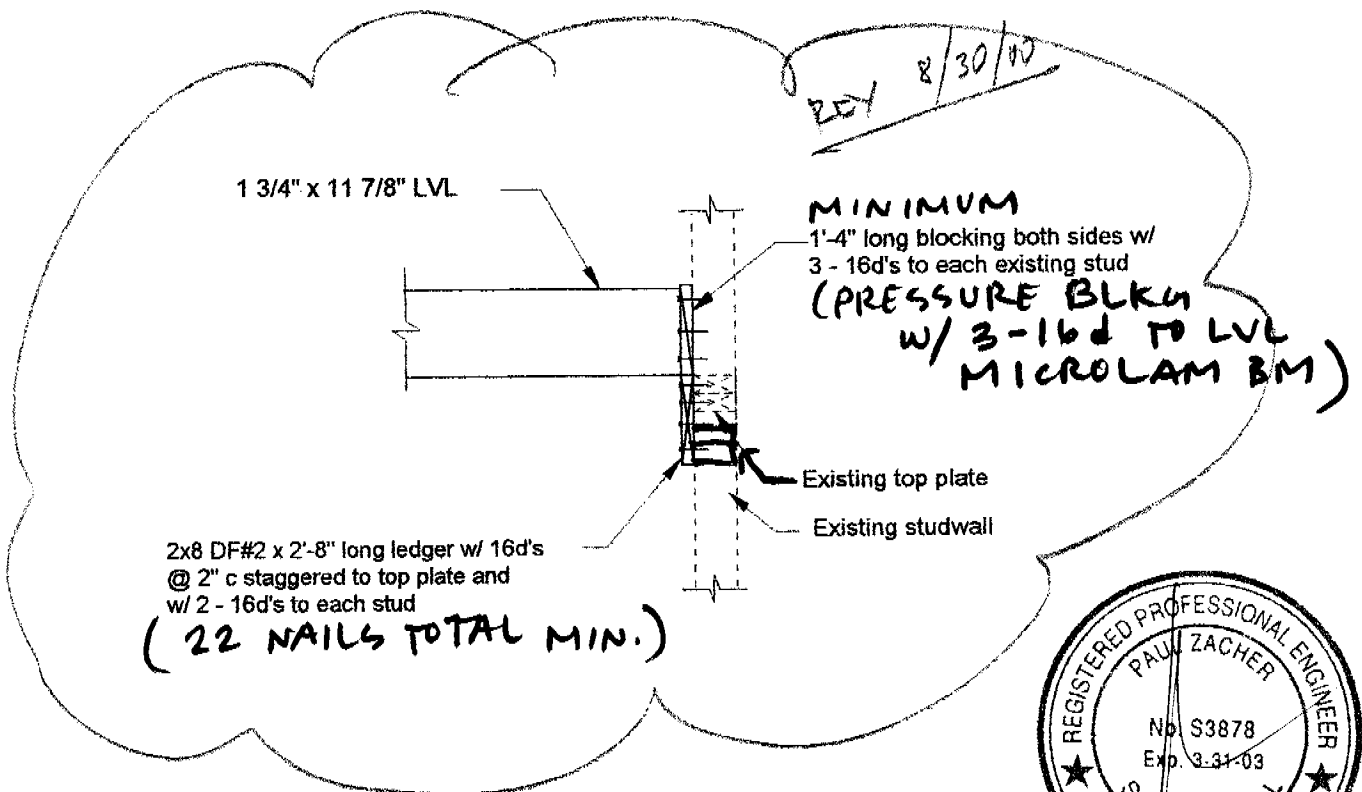 REV 8/30/00
1 3/4" x 11 7/8" LVL
MINIMUM
1'-4" long blocking both sides w/
3 - 16d's to each existing stud
(PRESSURE BLKG
w/ 3-16d TO LVL
MICROLAM BM)
Existing top plate
Existing studwall
2x8 DF#2 x 2'-8" long ledger w/ 16d's
@ 2" c staggered to top plate and
w/ 2 - 16d's to each stud
(22 NAILS TOTAL MIN.)
REGISTERED PROFESSIONAL ENGINEER
PAUL ZACHER
No. S3878
Exp. 3-31-03